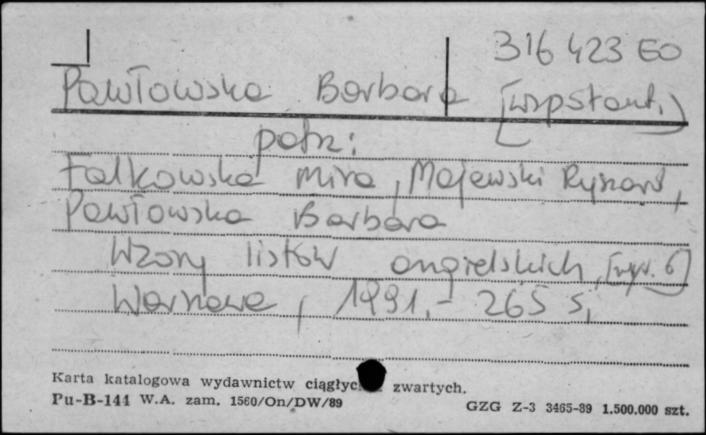 316 423 EO
Pawłowska Barbara [współaut.]
patrz:
Falkowska Mira, Majewski Ryszard,
Pawłowska Barbara
Wzory listów angielskich, [wyd. 6]
Warszawa, 1991.- 265 s.
Karta katalogowa wydawnictw ciągłyc zwartych.
Pu-B-144 W.A. zam. 1560/On/DW/89
GZG Z-3 3465-89 1.500.000 szt.